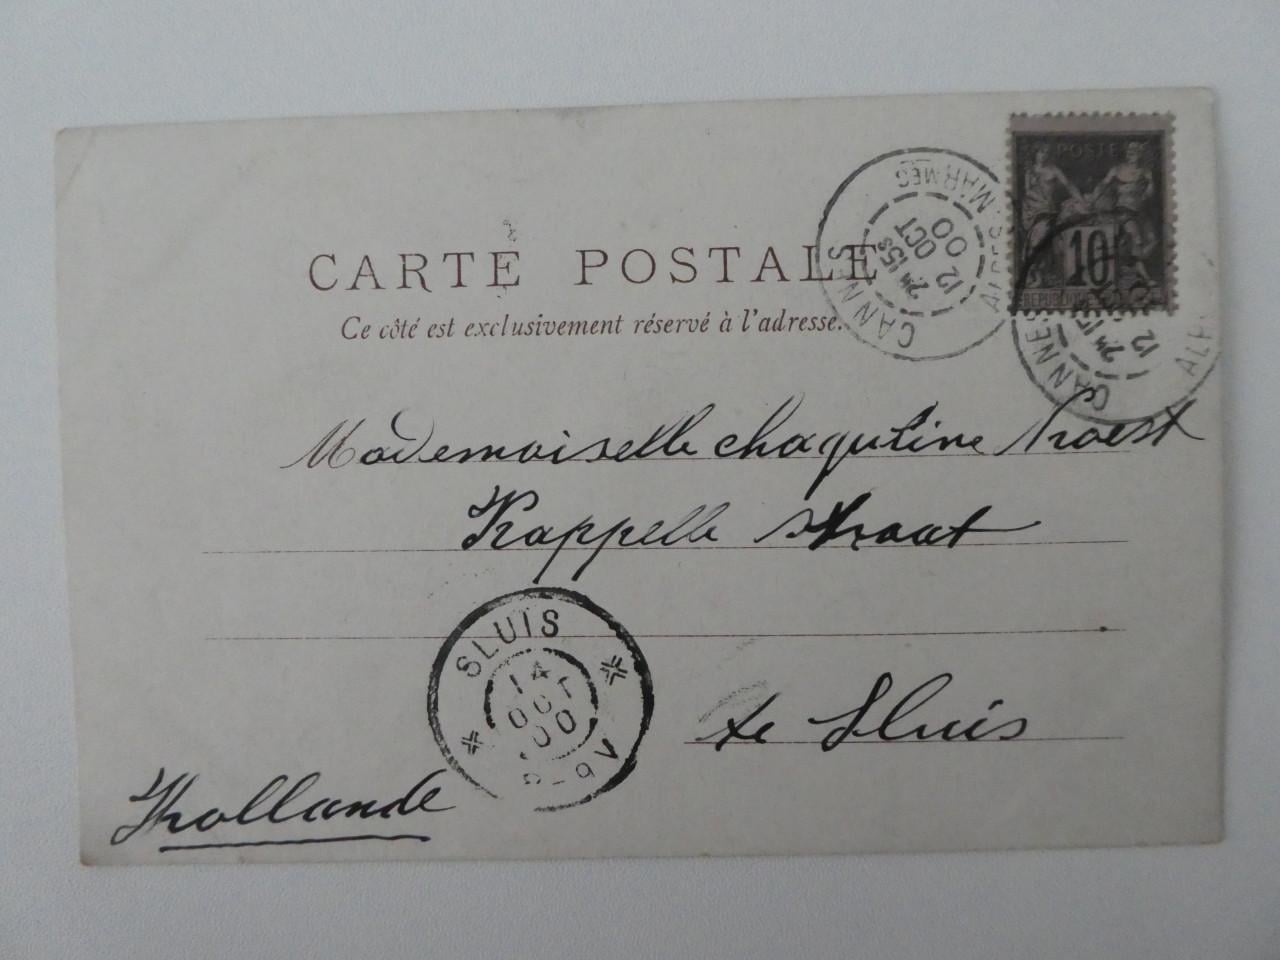 POSTE
10
REPUBLIQUE
CANNES
ALPES-MARMES
2M 15S
12 OCT
00
CANNES
ALP
2M 15
12
CARTE POSTALE
Ce côté est exclusivement réservé à l'adresse.
Mademoiselle chaquline
Kappelle straat
SLUIS
14
OCT
00
8-9V
te Sluis
Hollande